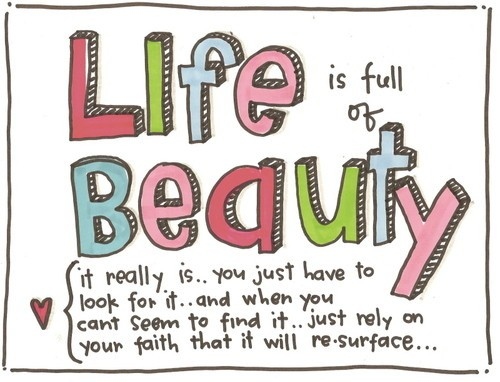 LIfe is full
of
Beauty
it really is.. you just have to
look for it.. and when you
cant seem to find it.. just rely on
your faith that it will re-surface...